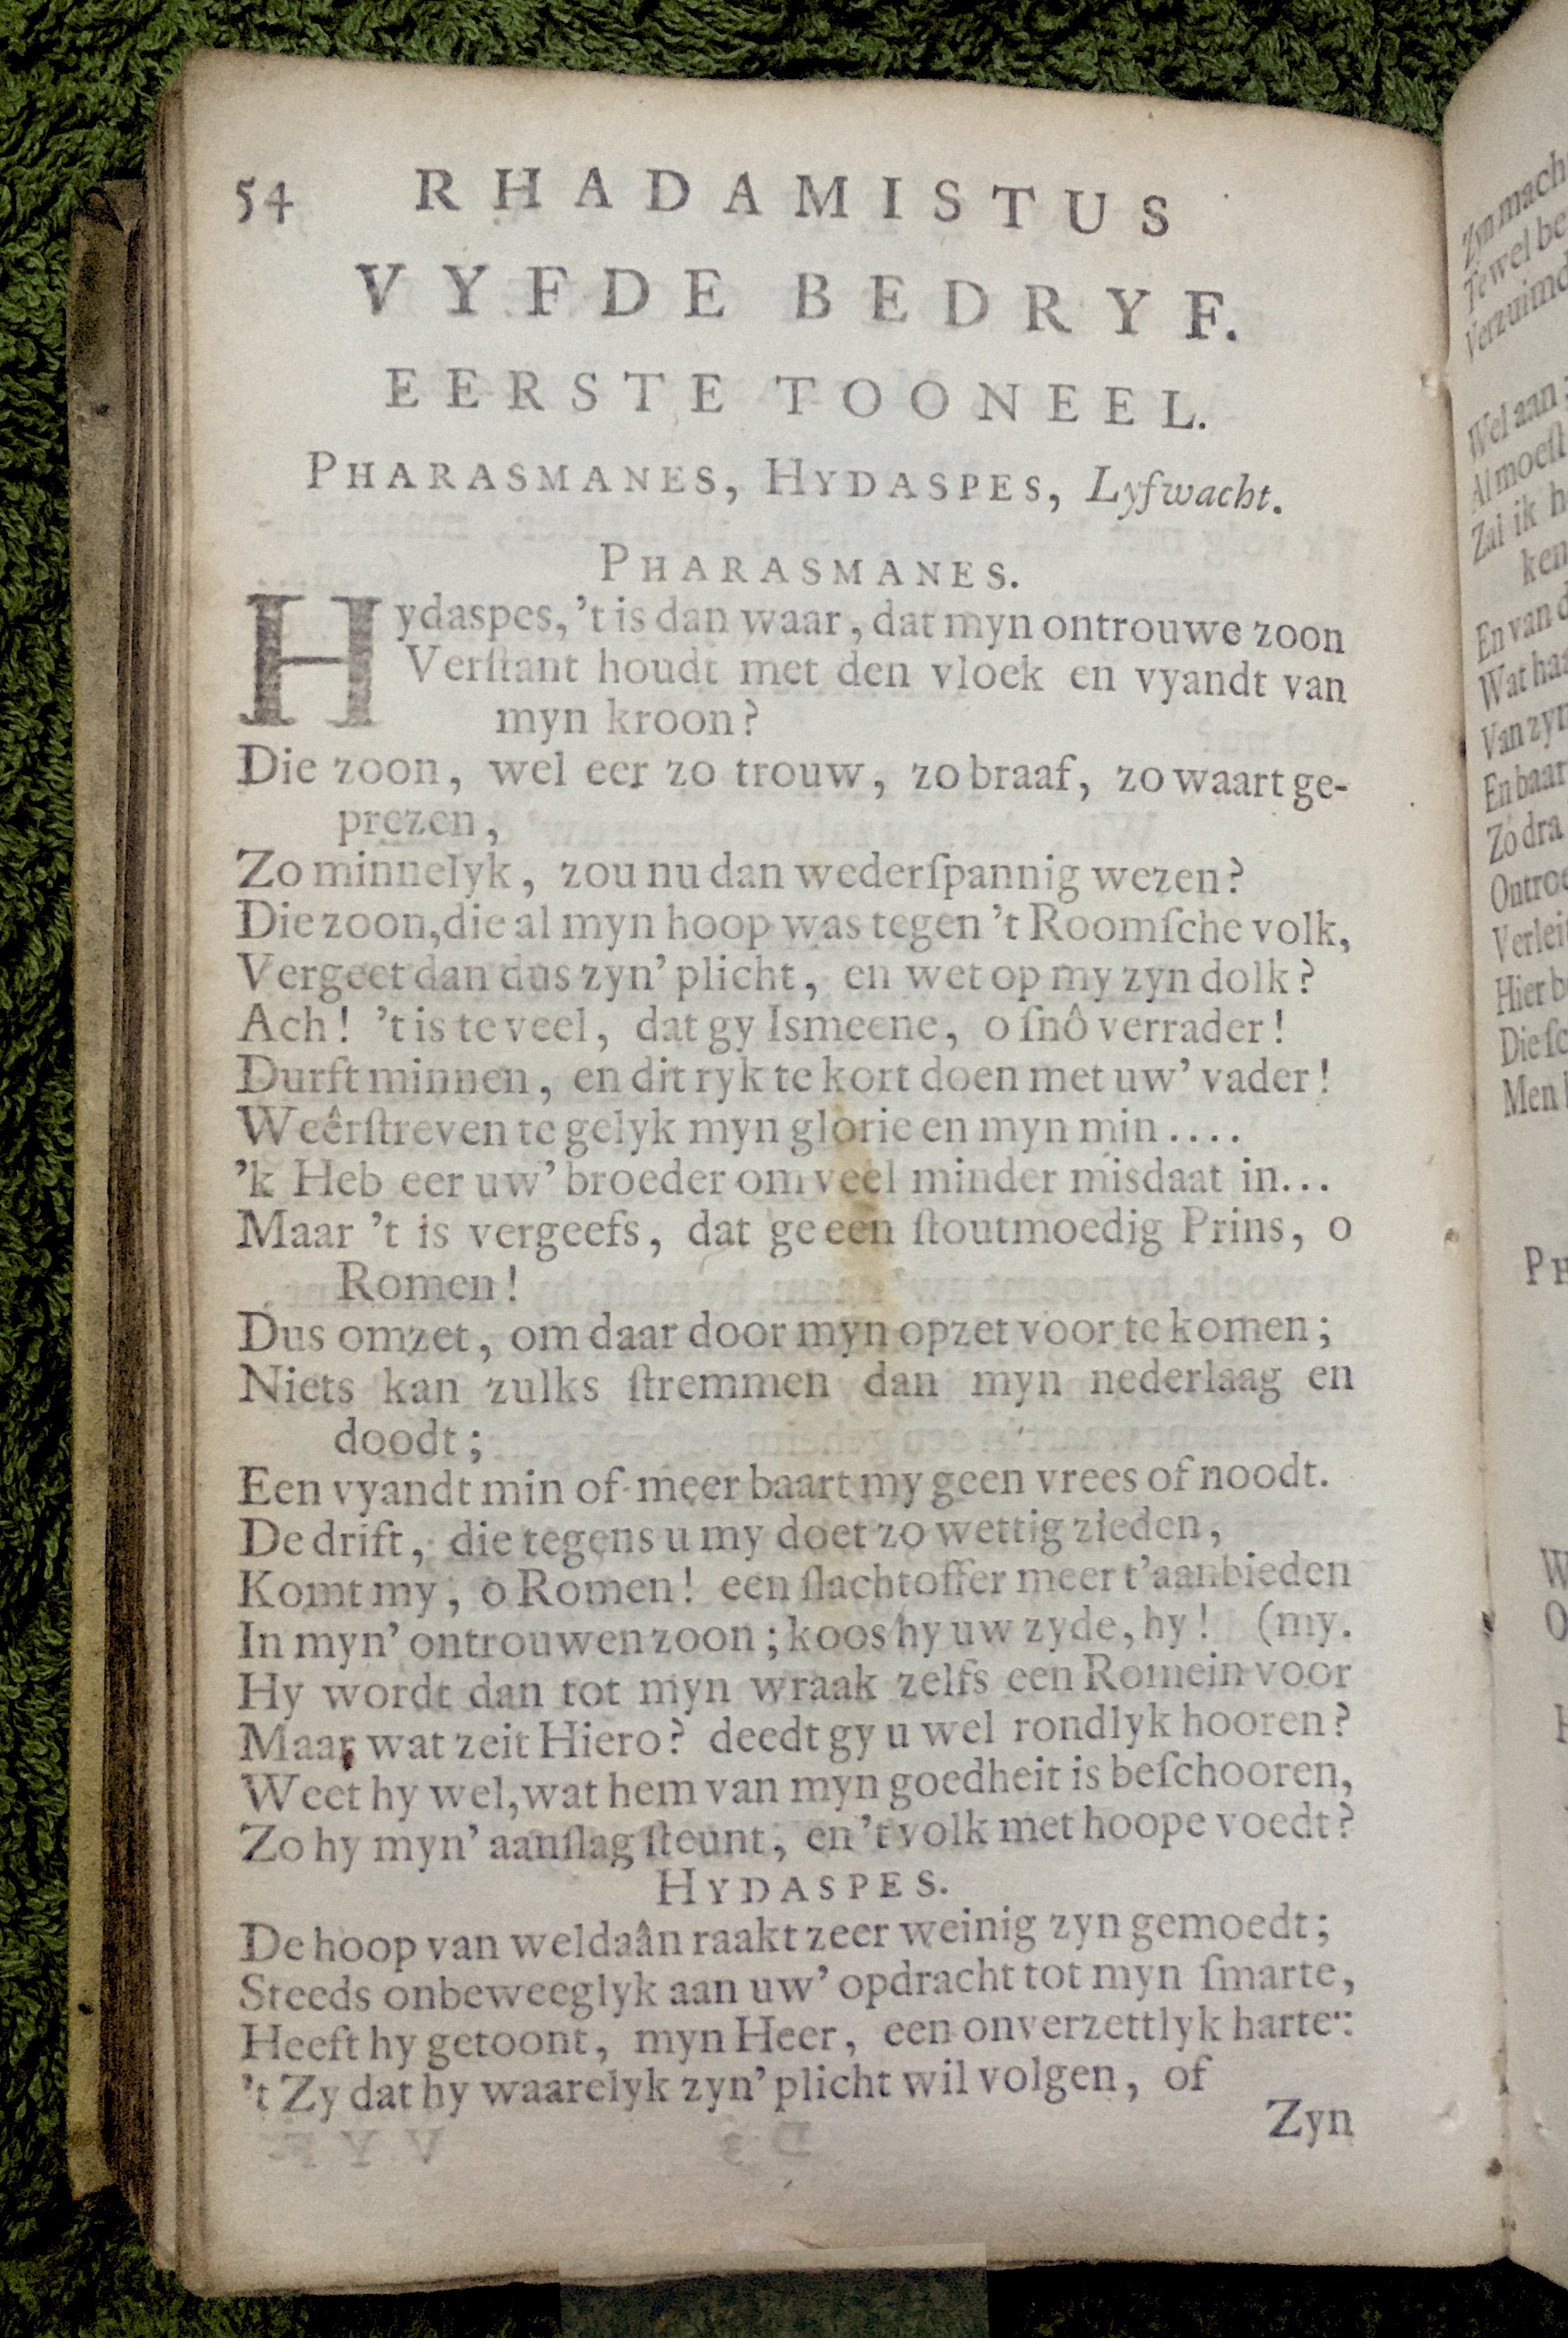 54 RHADAMISTUS
VYFDE BEDRYF.
EERSTE TOONEEL.
PHARASMANES, HYDASPES, Lyfwacht.
PHARASMANES.
Hydaspes, 't is dan waar, dat myn ontrouwe zoon
Verſtant houdt met den vloek en vyandt van
myn kroon?
Die zoon, wel eer zo trouw, zo braaf, zo waart ge-
prezen,
Zo minnelyk, zou nu dan wederſpannig wezen?
Die zoon, die al myn hoop was tegen 't Roomſche volk,
Vergeet dan dus zyn' plicht, en wet op my zyn dolk?
Ach! 't is te veel, dat gy Ismeene, o ſnô verrader!
Durft minnen, en dit ryk te kort doen met uw' vader!
Weêrſtreven te gelyk myn glorie en myn min....
'k Heb eer uw' broeder om veel minder misdaat in...
Maar 't is vergeefs, dat ge een ſtoutmoedig Prins, o
Romen!
Dus omzet, om daar door myn opzet voor te komen;
Niets kan zulks ſtremmen dan myn nederlaag en
doodt;
Een vyandt min of meer baart my geen vrees of noodt.
De drift, die tegens u my doet zo wettig zieden,
Komt my, o Romen! een ſlachtoffer meer t'aanbieden
In myn' ontrouwen zoon; koos hy uw zyde, hy! (my.
Hy wordt dan tot myn wraak zelfs een Romein voor
Maar wat zeit Hiero? deedt gy u wel rondlyk hooren?
Weet hy wel, wat hem van myn goedheit is beſchooren,
Zo hy myn' aanſlag ſteunt, en 't volk met hoope voedt?
HYDASPES.
De hoop van weldaân raakt zeer weinig zyn gemoedt;
Steeds onbeweeglyk aan uw' opdracht tot myn ſmarte,
Heeft hy getoont, myn Heer, een onverzettlyk harte:
't Zy dat hy waarelyk zyn' plicht wil volgen, of
Zyn
Zyn mach
Te wel be
Verzuimd
Wel aan;
Al moeſt
Zal ik h
ken
En van d
Wat haa
Van zyn
En baar
Zo dra
Ontroe
Verleit
Hier b
Die ſc
Men
PH
W
O